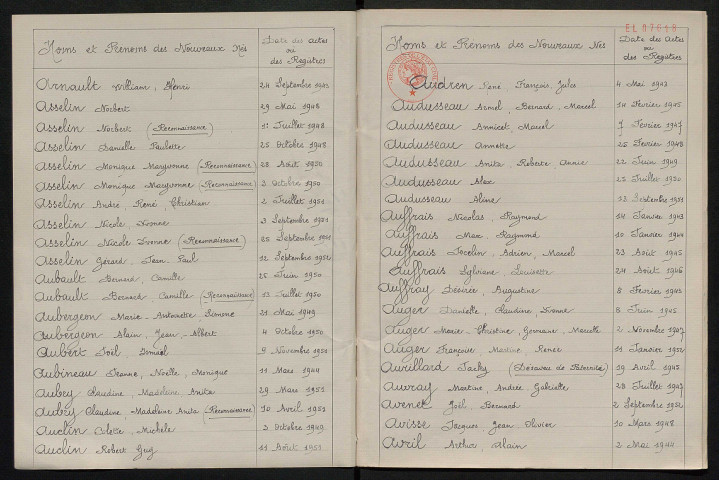 Noms et Prénoms des Nouveaux Nés Date des Actes
ou
des Registres
Arnault William, Henri 24 Septembre
Asselin Norbert 29 Mai 1948
Asselin Norbert (Reconnaissance) Juillet 1948
Asselin Danielle Paulette 25 Octobre 1948
Asselin Monique Maryvonne (Reconnaissance) 28 Août 1950
Asselin Monique Maryvonne (Reconnaissance) 2 Octobre 1950
Asselin André René, Christian 2 Juillet 1951
Asselin Nicole Yvonne 3 Septembre 1951
Asselin Nicole Yvonne (Reconnaissance) 25 Septembre 1951
Asselin Gérard, Jean, Paul 12 Septembre
Aubault Bernard, Camille 26 Juin 1950
Aubault Bernard, Camille (Reconnaissance) 13 Juillet 1950
Aubergeon Marie-Antoinette, Simone 21 Mai 1949
Aubergeon Alain, Jean, Albert 4 Octobre 1950
Aubert Joël, 9 Novembre
Aubineau Jeanne, Noëlle, Monique 11 Mars 1944
Aubry Claudine, Madeleine, Anita 29 Mars 1951
Aubry Claudine, Madeleine, Anita (Reconnaissance) 10 Avril 1951
Auclin Colette, Michèle 3 Octobre 1949
Auclin Robert Guy 11 Août 1951
EL07018
Noms et Prénoms des Nouveaux Nés Date des Actes
ou
des Registres
Audren René, François, Jules 4 Mai 1943
Audusseau Armel, Bernard, Marcel 14 Février 1945
Audusseau Annick, Marcel 7 Février 1947
Audusseau Annette 25 Février 1948
Audusseau Anita, Roberte, Annie 22 Juin 1949
Audusseau Alex 25 Juillet 1950
Audusseau Aline 13 Septembre 1951
Auffrais Nicolas, Raymond 14 Janvier 1943
Auffrais Max, Raymond 10 Janvier 1944
Auffrais Jocelin, Adrien, Marcel 23 Août 1945
Auffrais Sylviane, Louisette 24 Août 1946
Auffray Désirée, Augustine 8 Février 1945
Auger Danielle, Claudine, Yvonne 8 Juin 1945
Auger Marie-Christine, Germaine, Marcelle 2 Novembre 1947
Auger Françoise, Madine, Renée 11 Janvier
Aurillard Jacky (Désaveu de Paternité) 19 Avril 1945
Auvray Martine, Andrée, Gabrielle 28 Juillet 1947
Avenet Joël, Bernard 2 Septembre
Avisse Jacques, Jean, Olivier 10 Mars 1948
Avril Arthur, Alain 2 Mai 1944